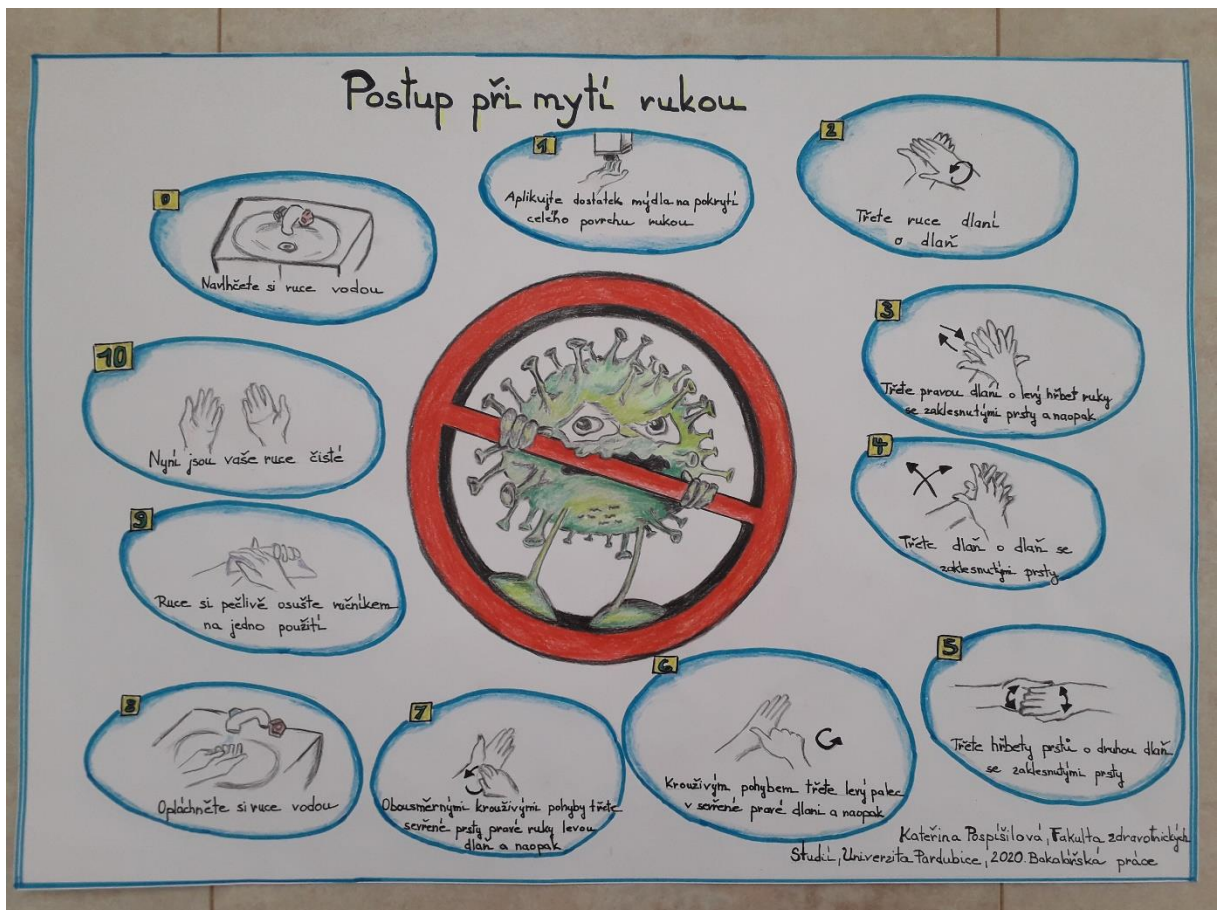 Postup při mytí rukou
0
Navlhčete si ruce vodou
1
Aplikujte dostatek mýdla na pokrytí
celého povrchu rukou
2
Třete ruce dlaní
o dlaň
3
Třete pravou dlaní o levý hřbet ruky
se zaklesnutými prsty a naopak
4
Třete dlaň o dlaň se
zaklesnutými prsty
5
Třete hřbety prstů o druhou dlaň
se zaklesnutými prsty
6
Krouživým pohybem třete levý palec
v sevřené pravé dlani a naopak
7
Obousměrnými krouživými pohyby třete
sevřené prsty pravé ruky levou
dlaň a naopak
8
Opláchněte si ruce vodou
9
Ruce si pečlivě osušte ručníkem
na jedno použití
10
Nyní jsou vaše ruce čisté
Kateřina Pospíšilová, Fakulta zdravotnických
Studií, Univerzita Pardubice, 2020. Bakalářská práce